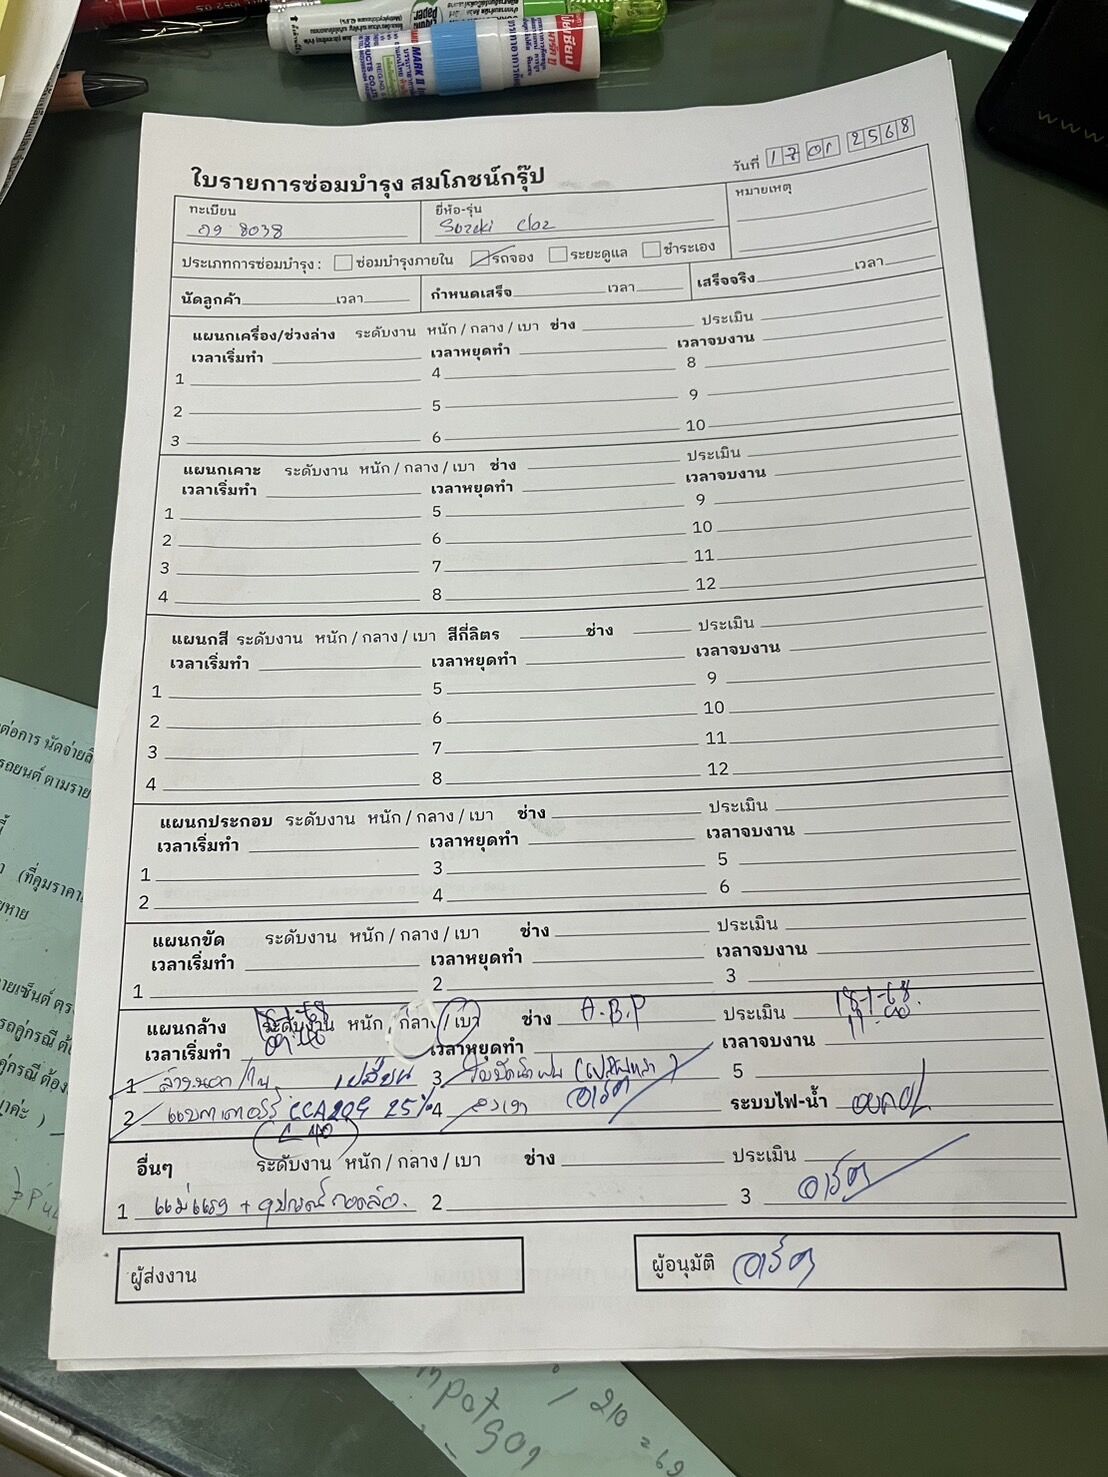 ใบรายการซ่อมบำรุง สมโภชน์กรุ๊ป
วันที่ 17 01 2568
ทะเบียน
8038
ยี่ห้อ-รุ่น
Suzuki Ciaz
หมายเหตุ
ประเภทการซ่อมบำรุง : ซ่อมบำรุงภายใน รถจอง ระยะดูแล ชำระเอง
นัดลูกค้า เวลา กำหนดเสร็จ เวลา เสร็จจริง เวลา
แผนกเครื่อง/ช่วงล่าง ระดับงาน หนัก / กลาง / เบา ช่าง ประเมิน
เวลาเริ่มทำ เวลาหยุดทำ เวลาจบงาน
1 4 8
2 5 9
3 6 10
แผนกเคาะ ระดับงาน หนัก / กลาง / เบา ช่าง ประเมิน
เวลาเริ่มทำ เวลาหยุดทำ เวลาจบงาน
1 5 9
2 6 10
3 7 11
4 8 12
แผนกสี ระดับงาน หนัก / กลาง / เบา สีกี่ลิตร ช่าง ประเมิน
เวลาเริ่มทำ เวลาหยุดทำ เวลาจบงาน
1 5 9
2 6 10
3 7 11
4 8 12
แผนกประกอบ ระดับงาน หนัก / กลาง / เบา ช่าง ประเมิน
เวลาเริ่มทำ เวลาหยุดทำ เวลาจบงาน
1 3 5
2 4 6
แผนกขัด ระดับงาน หนัก / กลาง / เบา ช่าง ประเมิน
เวลาเริ่มทำ เวลาหยุดทำ เวลาจบงาน
1 2 3
แผนกล้าง ระดับงาน หนัก กลาง / เบา ช่าง A.B.P ประเมิน 18-1-68
เวลาเริ่มทำ เวลาหยุดทำ เวลาจบงาน
1 ล้างนอก/ใน เปลี่ยน 3 ใบปัดน้ำฝน 5
2 แบตเตอรี่ CCA209 25% 4 ระบบไฟ-น้ำ
อื่นๆ ระดับงาน หนัก / กลาง / เบา ช่าง ประเมิน
1 แม่แรง + อุปกรณ์ 2 3
ผู้ส่งงาน
ผู้อนุมัติ